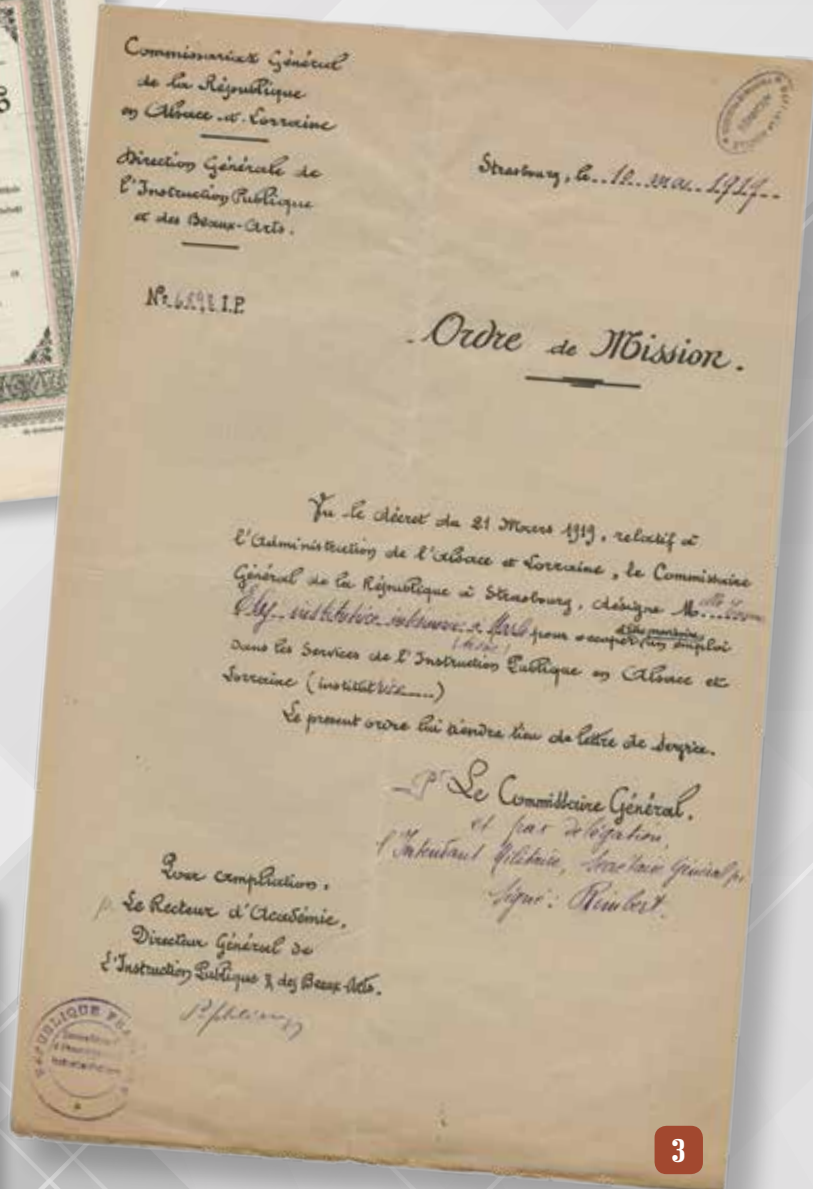 Commissariat Général
de la République
en Alsace et Lorraine
Direction Générale de
l'Instruction Publique
et des Beaux-Arts.
Strasbourg, le 10 mai 1919
N° I.P.
Ordre de Mission.
Vu le décret du 21 Mars 1919, relatif à
l'Administration de l'Alsace et Lorraine, le Commissaire
Général de la République à Strasbourg, désigne M Mlle
Ely institutrice intérimaire à Marle pour occuper un emploi
(Aisne) d'élémentaire
dans les Services de l'Instruction Publique en Alsace et
Lorraine (institutrice)
Le présent ordre lui tiendra lieu de lettre de service.
Pr Le Commissaire Général.
et par délégation,
l'Intendant Militaire, Secrétaire Général
Signé: Reimbert.
Pour ampliation,
p. Le Recteur d'Académie,
Directeur Général de
l'Instruction Publique & des Beaux-Arts.
RÉPUBLIQUE
3